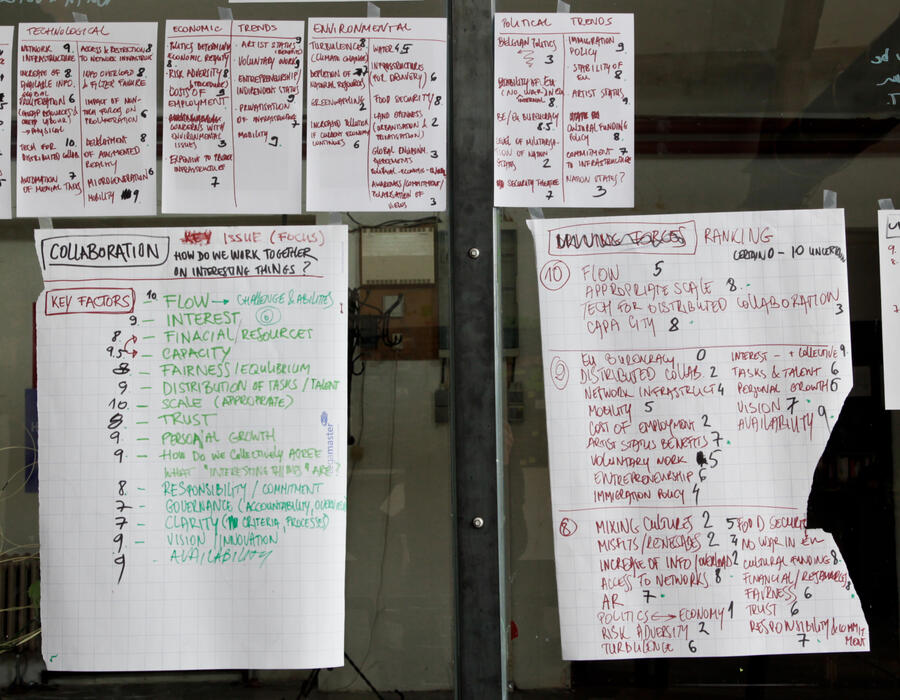 TECHNOLOGICAL
NETWORK 9.
INFRASTRUCTURE
INCREASE OF 8
AVAILABLE INFO.
GLOBAL
PROLIFERATION 6
→ PHYSICAL
TECH FOR 10.
DISTRIBUTED COLLAB.
AUTOMATION 7
OF MENIAL TASKS
ACCESS & RESTRICTION 8
TO NETWORK INFRASTRUC
INFO OVERLOAD 8.
& FILTER FAILURE
IMPACT OF NON-
TECH FORCES ON 6
PROLIFERATION
DEVELOPMENT 8.
OF AUGMENTED
REALITY
MICROGENERATION 6
MOBILITY 9
ECONOMIC TRENDS
POLITICS DETERMINING
ECONOMIC REALITY
8
RISK ADVERSITY 8
COSTS OF
EMPLOYMENT 9
CONCERNS WITH
ENVIRONMENTAL
ISSUES 3
EXPENSIVE TO
INFRASTRUCTURE
7
ARTIST STATUS 9
(BENEFITS)
VOLUNTARY WORK 9
ENTREPRENEURSHIP/
INDEPENDENT STATUS
9
PRIVATISATION
OF INFRASTRUCTURE
7
MOBILITY 9.
ENVIRONMENTAL
TURBULENCE 8
(CLIMATE CHANGE)
DEPLETION OF 7
NATURAL RESOURCES
GREENWASHING 5
INCREASING POLLUTION
IF CURRENT ECONOMY
CONTINUES 6
WATER 4.5
INFRASTRUCTURES
(FOR DRINKING) 6
FOOD SECURITY 8
LAND OWNNESS
(URBANISATION & 2
PRIVATISATION)
GLOBAL ENVIRONM.
AGREEMENTS 3
AWARENESS/COMMITMENT/
POLARISATION OF
VIEWS 3
POLITICAL TRENDS
BELGIAN POLITICS
3
(NO WAR) IN EU
8
BE/EU BUREAUCRACY
8.5
LEVEL OF MILITARISA-
TION OF NATION
STATES 2
SECURITY THEATRE
7
IMMIGRATION
POLICY 9
STABILITY OF
EU. 8
ARTIST STATUS
9.
CULTURAL FUNDING
POLICY 8.
COMMITMENT 7
TO INFRASTRUCTURE
NATION STATES?
3
COLLABORATION
KEY ISSUE (FOCUS)
HOW DO WE WORK TOGETHER
ON INTERESTING THINGS?
KEY FACTORS
10. FLOW → CHALLENGE & ABILITIES
9 – INTEREST 6
8. – FINACIAL/RESOURCES
9.5 – CAPACITY
8 – FAIRNESS/EQUILIBRIUM
9 – DISTRIBUTION OF TASKS/TALENT
10 – SCALE (APPROPRIATE)
8 – TRUST
9. – PERSONAL GROWTH
9. – HOW DO WE COLLECTIVELY AGREE
WHAT "INTERESTING THINGS" ARE?
8 – RESPONSIBILITY/COMMITMENT
7 – GOVERNANCE (ACCOUNTABILITY,
7 – CLARITY ( CRITERIA, PROCESSES)
9 – VISION/INNOVATION
9 – AVAILABILITY
gamaster
DRIVING FORCES RANKING
CERTAIN 0 – 10 UNCERTAIN
10 FLOW 5
APPROPRIATE SCALE 8
TECH FOR DISTRIBUTED COLLABORATION 3
CAPACITY 8
9 EU BUREUCRACY 0
DISTRIBUTED COLLAB. 2
NETWORK INFRASTRUCT 4
MOBILITY 5
COST OF EMPLOYMENT 2
ARTIST STATUS BENEFITS 7
VOLUNTARY WORK 5
ENTREPRENEURSHIP 6
IMMIGRATION POLICY 4
INTEREST – + COLLECTIVE 9.
TASKS & TALENT 6
PERSONAL GROWTH 6
VISION 7
AVAILABILITY 9
8 MIXING CULTURES 2
MISFITS/RENEGADES 2
INCREASE OF INFO/OVERLOAD 2
ACCESS TO NETWORKS 8
AR 7
POLITICS ↔ ECONOMY 1
RISK ADVERSITY 2
TURBULENCE 6
5 FOOD SECURITY
4 NO WAR IN EU
CULTURAL FUNDING 8
FINANCIAL/RESOURCES 8
FAIRNESS 6
TRUST 6
RESPONSIBILITY & COMMIT
MENT
7